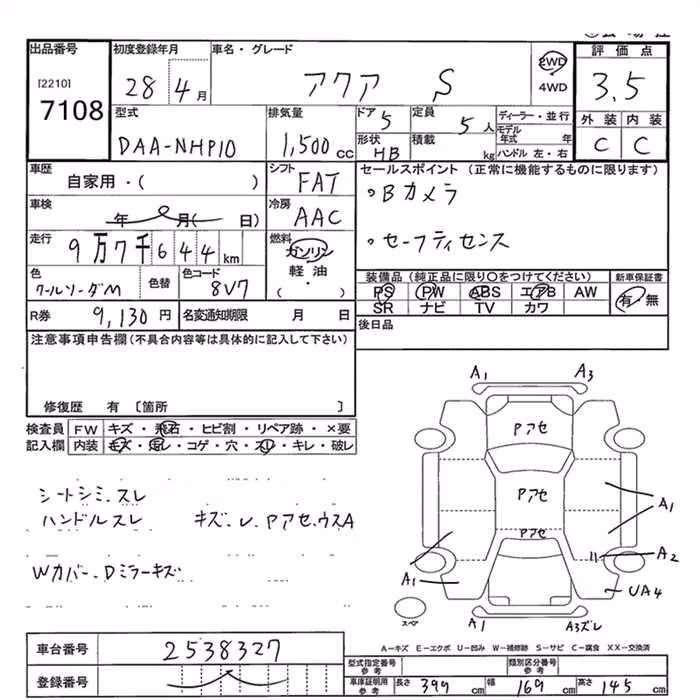 出品番号 初度登録年月 車名・グレード 評価点
[2210] 7108
28 4月 アクア S
2WD 4WD
3.5
型式 排気量 ドア 5 定員 5人 ディーラー・並行 外装 内装
DAA-NHP10 1,500cc 形状 HB 積載 kg モデル年式 年 ハンドル 左・右 C C
車歴 シフト セールスポイント (正常に機能するものに限ります)
自家用・( ) FAT 。Bカメラ
車検 冷房
年 月( 日) AAC
走行 燃料 。セーフティセンス
9万7千644km ガソリン 軽油 ・( )
色 色替 色コード 装備品(純正品に限り○をつけてください) 新車保証書
クールソーダM 8V7 PS PW ABS エアB AW 有・無
SR ナビ TV カワ
R券 9,130円 名変通知期限 月 日 後日品
注意事項申告欄(不具合内容等は具体的に記入して下さい)
修復歴 有 〔箇所 〕
検査員 FW キズ・飛石・ヒビ割・リペア跡・×要
記入欄 内装 キズ・汚レ・コゲ・穴・スレ・キレ・破レ
シートシミ、スレ
ハンドルスレ キズ、レ、Pアセ、ウスA
Wカバー、Dミラーキズ
A1 A3
Pアセ
Pアセ
A1
Pアセ
A2
A1
UA4
スペア A1 A3ズレ
A−キズ E−エクボ U−凹み W−補修跡 S−サビ C−腐食 XX−交換済
車台番号 2538327
登録番号
型式指定番号 参考 類別区分番号 参考
車庫証明用 参考 長さ 399cm 幅 169cm 高さ 145cm